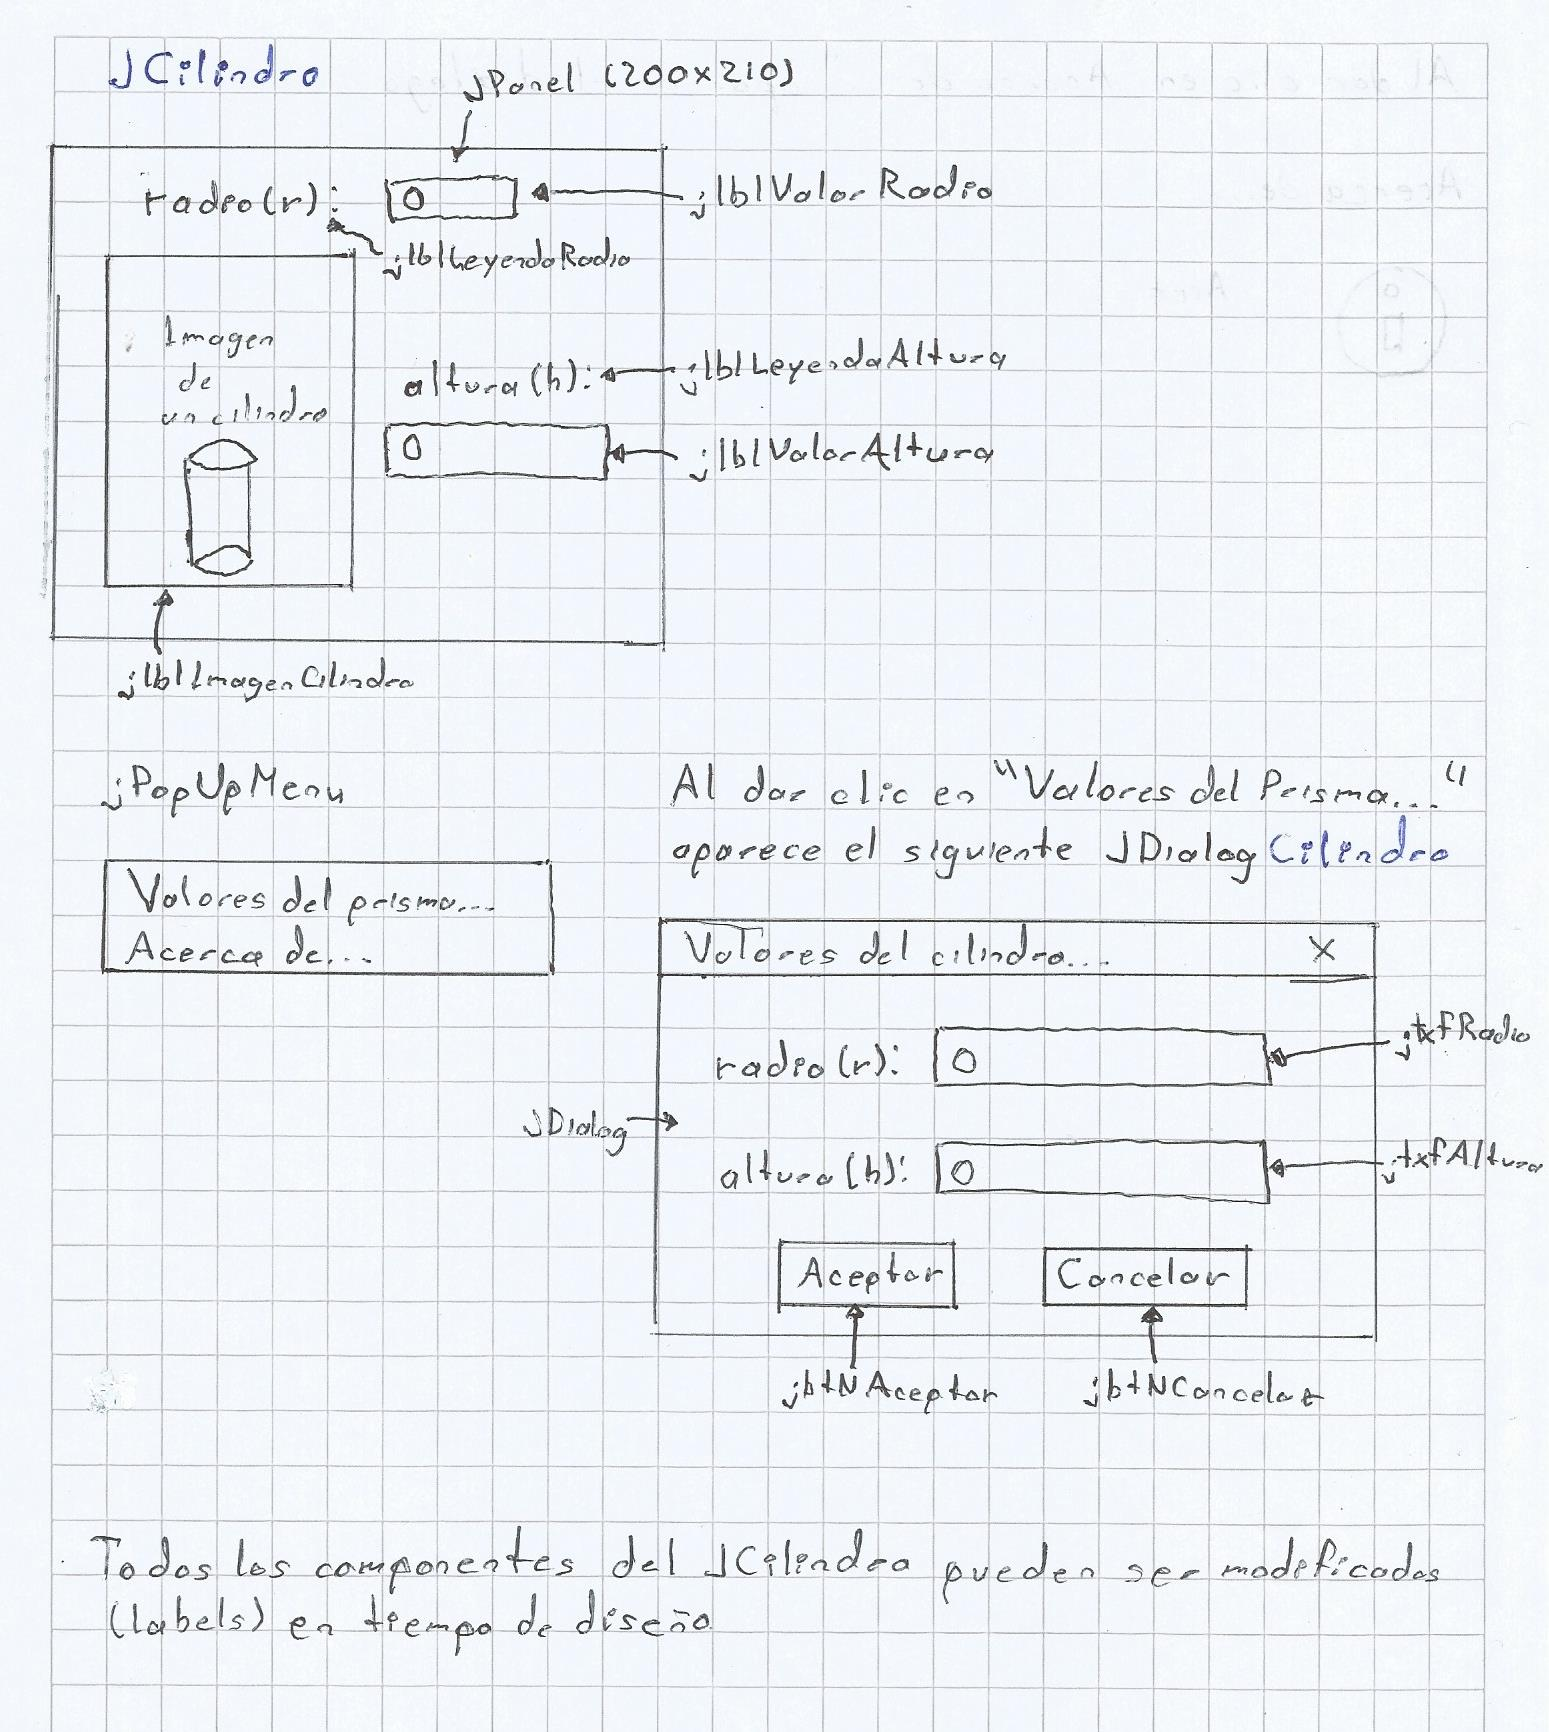 JCilindro
JPanel (200x210)
radio(r): 0 jlblValorRadio
jlblLeyendaRadio
Imagen
de
un cilindro
altura(h): jlblLeyendaAltura
0 jlblValorAltura
jlblImagenCilindro
jPopUpMenu
Valores del prisma...
Acerca de...
Al dar clic en "Valores del Prisma..."
aparece el siguiente JDialogCilindro
Valores del cilindro... X
radio(r): 0 jtxfRadio
JDialog
altura(h): 0 jtxfAltura
Aceptar Cancelar
jbtNAceptar jbtNCancelar
Todos los componentes del JCilindro pueden ser modificados
(labels) en tiempo de diseño